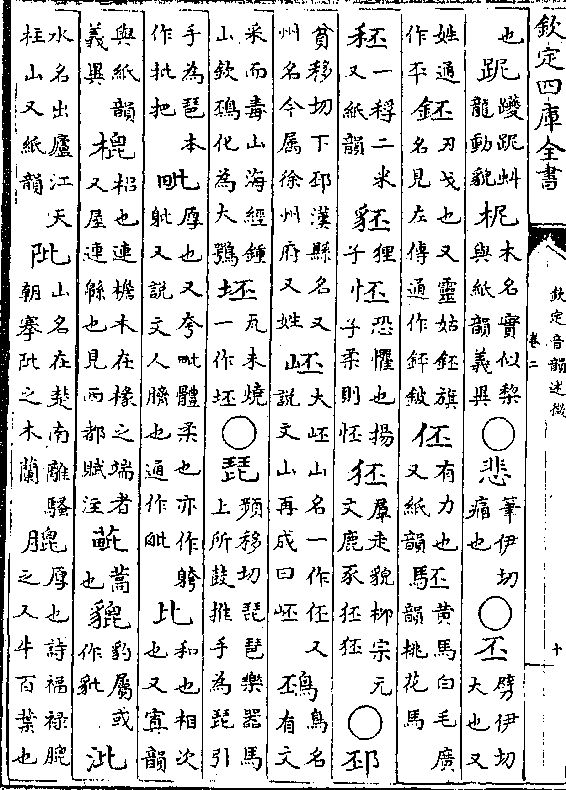 欽定四庫全書
欽定音韻述微
卷二
十
也跜躨跜虯龍動貌柅木名實似梨與紙韻義異○悲筆伊切痛也○丕劈伊切大也又
姓通作㔻鉟刃戈也又靈姑鉟旗名見左傳通作鉟鈹伾有力也又紙韻駓黄馬白毛廣韻桃花馬
秠一稃二米又紙韻豾狸子怌恐懼也揚子柔則怌狉羣走貌柳宗元文鹿豕狉狉○邳
貧移切下邳漢縣名又州名今属徐州府又姓岯大岯山名一作伾又說文山再成曰岯䲹鳥名有文
采而毒山海經鍾山欽䲹化為大鶚坯瓦未燒一作坯○琵頻移切琵琶樂器馬上所鼓推手為琵引
手為琶本作批把毗厚也又夸毗體柔也亦作䠸躯又說文人臍也通作毗比和也相次也又寘韻
與紙韻義異㮰梠也連檐木在椽之端者又屋連緜也見兩都賦注蓖蒿也貔豹屬或作豼沘
水名出廬江天柱山又紙韻阰山名在楚南離騷朝搴阰之木蘭膍厚也詩福禄膍之又牛百葉也